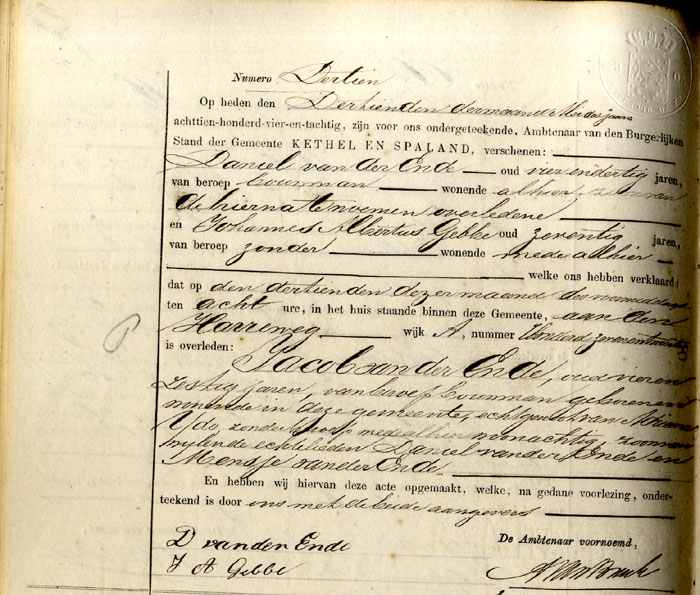 Numero Dertien
Op heden den Dertienden der maand Mei des jaars
achttien-honderd-vier-en-tachtig, zijn voor ons ondergeteekende, Ambtenaar van den Burgerlijken
Stand der Gemeente KETHEL EN SPALAND, verschenen:
Daniel van der Ende oud vier en dertig jaren,
van beroep bouwman wonende alhier, zoon van
de hierna te noemen overledene
en Johannes Albertus Gebbe oud zeventig jaren,
van beroep zonder wonende mede alhier
welke ons hebben verklaard:
dat op den dertienden dezer maand des voormiddags
ten acht ure, in het huis staande binnen deze Gemeente, aan den
Harreweg wijk A, nummer Honderd zeven en twintig
is overleden:
Jacob van der Ende, oud vier en
zestig jaren, van beroep bouwman geboren en
wonende in deze gemeente, echtgenoot van
Ydo, zonder beroep mede alhier woonachtig, zoon van
wijlende echtelieden Daniel van der Ende en
Mensje van der Ende
En hebben wij hiervan deze acte opgemaakt, welke, na gedane voorlezing, onder-
teekend is door ons met de beide aangevers
D van der Ende
De Ambtenaar voornoemd,
J A Gebbe